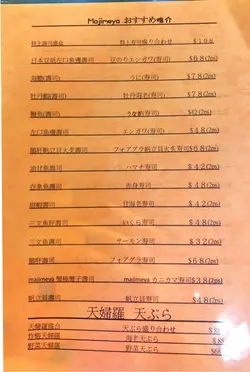 Majimeya おすすめ紹介
特上壽司盛合 特上寿司盛り合わせ $198
日本豆紙左口魚邊壽司 豆のりエンガワ(寿司) $68(2ps)
海膽(壽司) うに(寿司) $78(2ps)
牡丹蝦(壽司) 牡丹海老(寿司) $78(2ps)
鰻魚(壽司) うな(寿司) $42(2ps)
左口魚邊壽司 エンガワ(寿司) $48(2ps)
鵝肝帆立貝火炙壽司 フォアグラ帆立貝火炙寿司 $68(2ps)
油甘魚壽司 ハマチ寿司 $42(2ps)
吞拿魚壽司 赤身寿司 $48(2ps)
甜蝦壽司 甘海老寿司 $42(2ps)
三文魚籽壽司 いくら寿司 $48(2ps)
三文魚壽司 サーモン寿司 $32(2ps)
鵝肝壽司 フォアグラ寿司 $68(2ps)
majimeya 蟹柳蟹子壽司 majimeya カニカマ寿司 $38(2ps)
帆立貝壽司 帆立貝寿司 $48(2ps)
天婦羅 天ぷら
天婦羅盛合 天ぷら盛り合わせ
炸蝦天婦羅 海老天ぷら
野菜天婦羅 野菜天ぷら